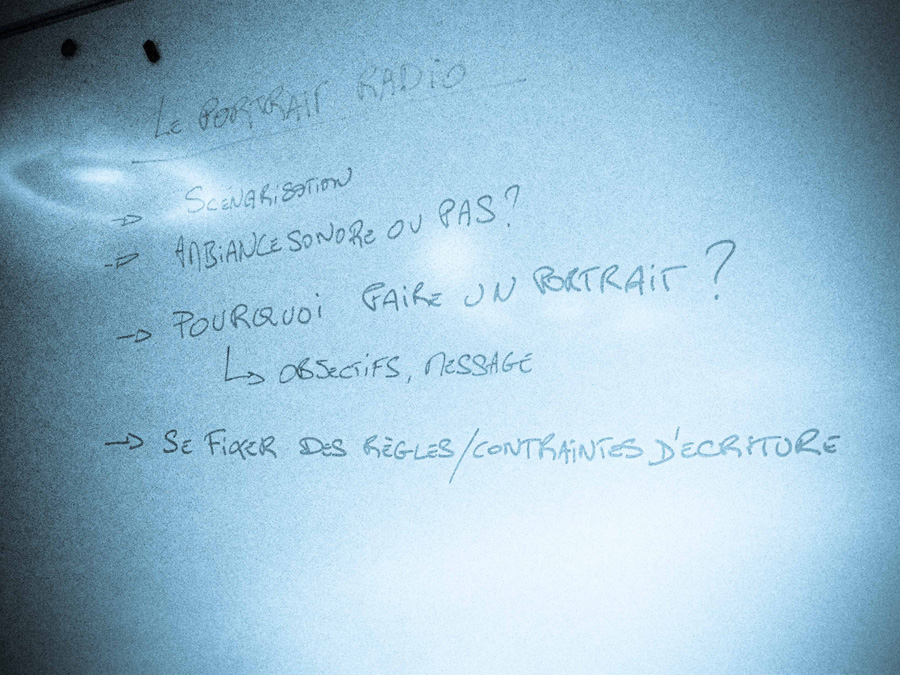 LE PORTRAIT RADIO
→ SCÉNARISATION
→ AMBIANCE SONORE OU PAS ?
→ POURQUOI FAIRE UN PORTRAIT ?
↳ OBJECTIFS, MESSAGE
→ SE FIXER DES RÈGLES/CONTRAINTES D'ECRITURE